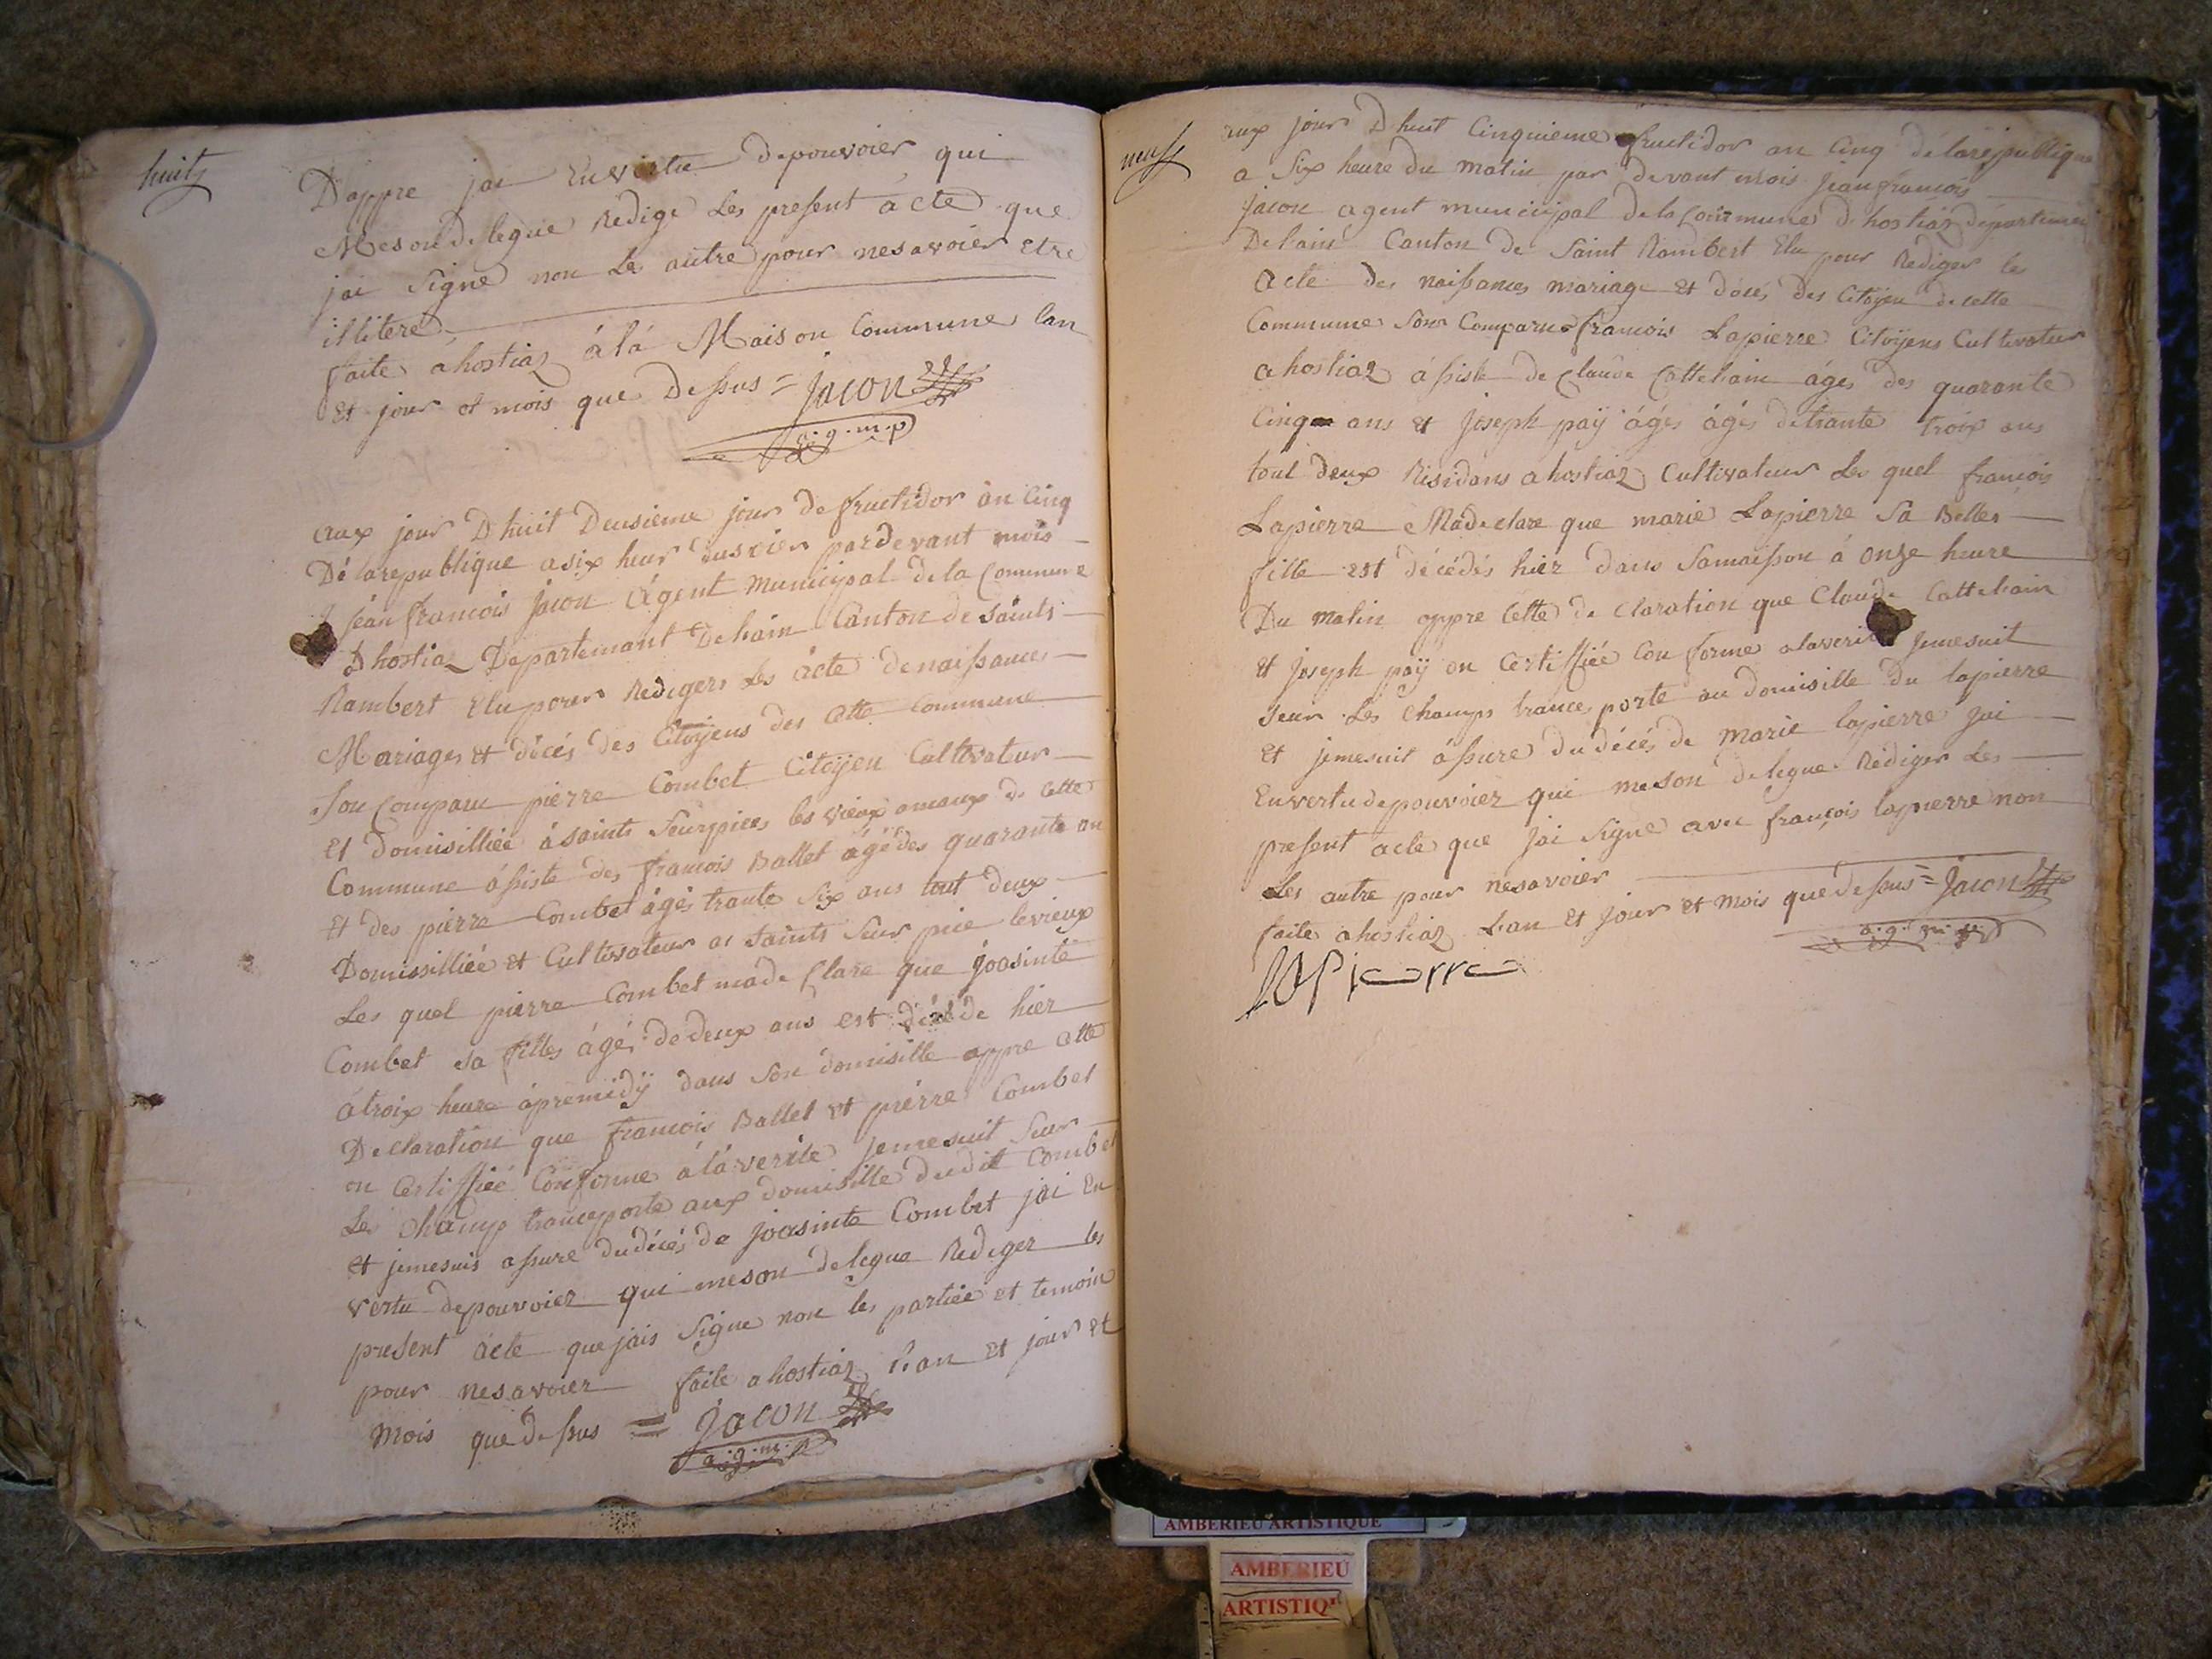 huit
Dappre jai En vertu depouvoier qui
Meson delegue Redige Les present acte que
jai Signe non Les autre pour nesavoier Etre
illitere
faite a hostiaz á lá Maison Commune lan
Et jour et mois que Dessus = jacon
a.g.m.p
aux jour Dhuit Deusieme jour de fructidor an Cinq
Dé larepublique a six heur du soier pardevant mois
jéan francois jacon Ágent Municipal de la Commune
Dhostiaz Departemant Delain Canton de saints
Rambert Elu pour Redigers Les ácte denaissances
Mariages et décés des Citoÿens des Cette Commune
Son Comparu pierre Combet Citoÿen Cultivateur
Et Domisilliée á saints Seurpices les vieux de Cette
Commune ássiste des francois Ballet ágé des quarante an
Et des pierre Combet ágés trante Six ans tout deux
Domissilliée et Cultivateur a Saints Seur pice levieux
Les quel pierre Combet made Clare que joasinte
Combet sa filles ágés de deux ans est décéde hier
á troix heure ápremidÿ dans Son domisille appre Cette
Declaration que francois Ballet et piérre Combet
on Certiffiéé Conforme á lá verite Jemesuit Seur
Les champ trancporte aux domisille dudit Combet
et jemesuis assure dudécés de joasinte Combet jai En
vertu depouvoier qui meson delegue Rediger les
present ácte que jais Signe non les partiée et temoin
pour nesavoier faite a hostiaz l'an et jour et
mois que dessus = jacon
a.g.m.p
neuf
aux jour Dhuit Cinquieme fructidor an Cinq de larepublique
a Six heure du matin par devant mois jean francois
jacon agent municipal dela Commune dhostiaz departemen
Delain Canton de Saint Rambert Elu pour Rediger les
acte des naissances mariage et décés des Citoÿen de cette
Commune Son Comparue francois Lapierre Citoÿens Cultivateur
a hostiaz ássiste de Claude Cattelain ágés des quarante
Cinq ans et joseph paÿ ágés ágés detrante troix ans
tout deux Residans a hostiaz Cultivateur Les quel francois
Lapierre Madeclare que marie Lapierre Sa Belles
fille est décédés hier dans Samaisson á onze heure
Du matin appre Cette declaration que Claude Cattelain
et joseph paÿ on Certiffiée Conforme alaverite Jemesuit
seur Les champs trancporte au domisille du lapierre
et jemesuit ássure du décés de marie lapierre jai
Envertu depouvoier qui meson delegue Rédiger Les
present acte que Jai Signe avec françois lapierre non
Les autre pour nesavoier
faite a hostiaz Lan et jour et mois que dessus = Jacon
a.g.m.p
lapierre
AMBERIEU ARTISTIQUE
AMBERIEU
ARTISTIQ